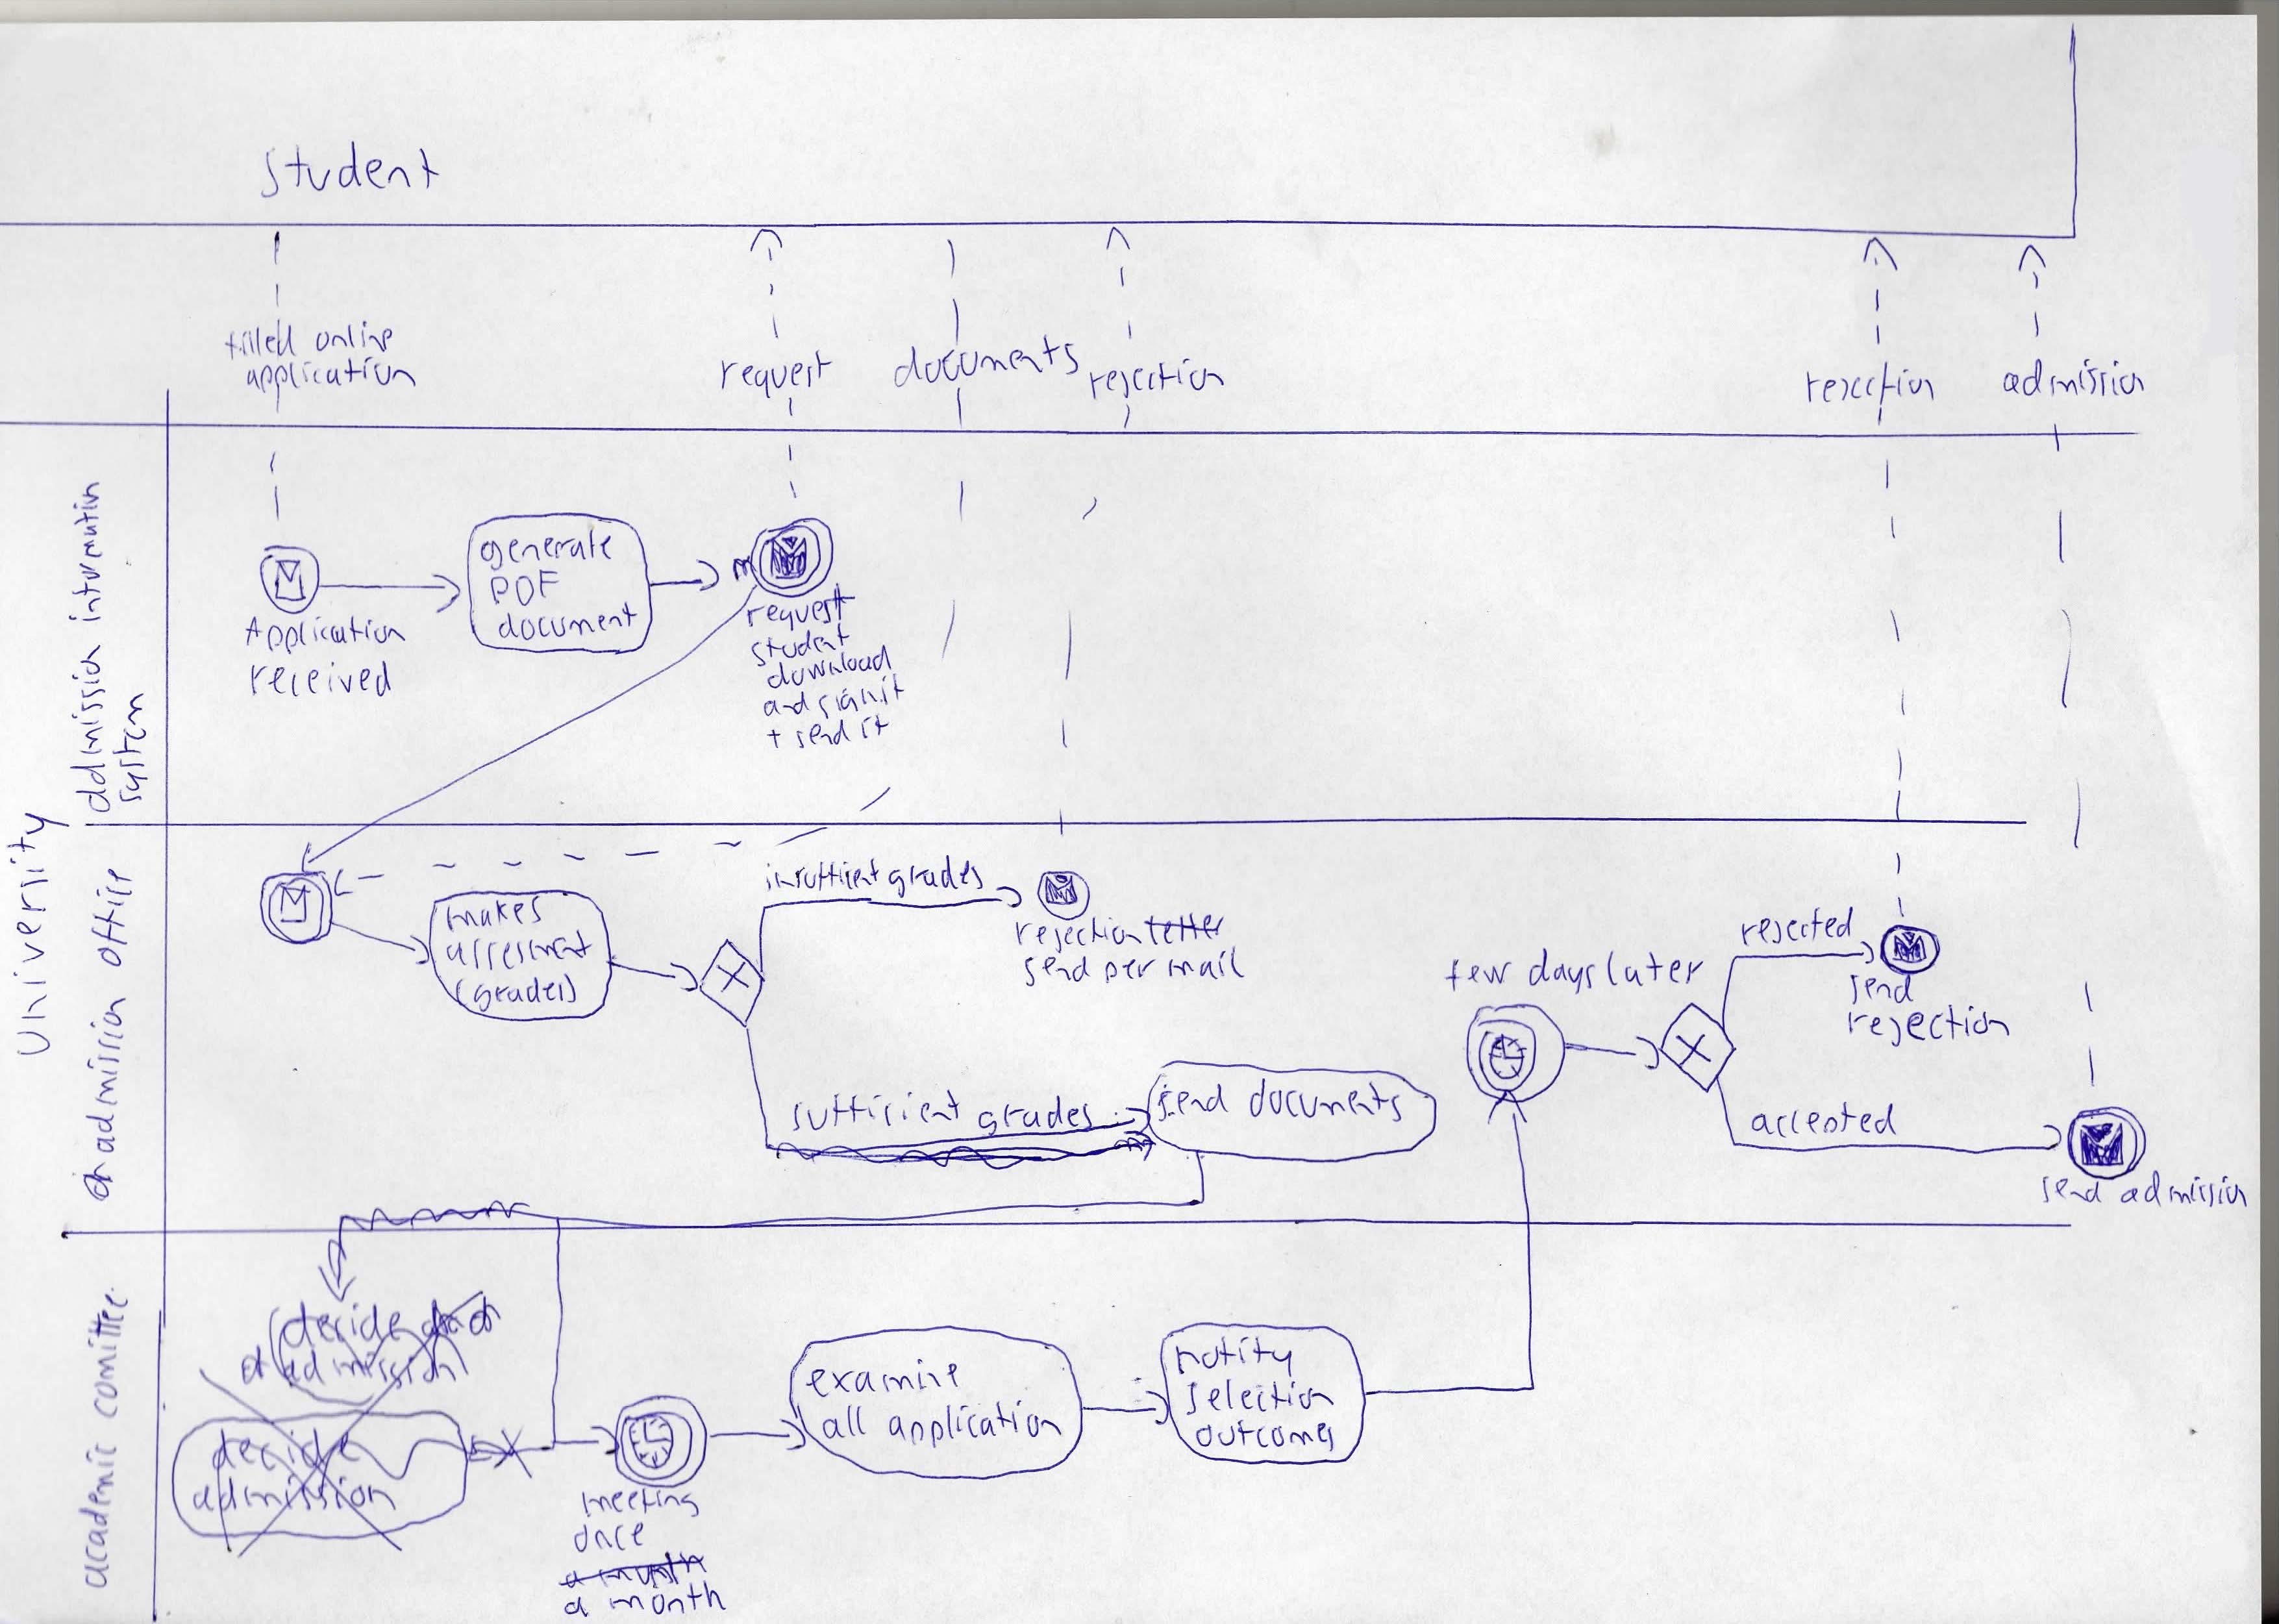 student
filled online
application
request
documents
rejection
rejection
admission
University
admission information
system
admission office
academic comittee
Application
received
generate
PDF
document
request
student
download
and sign it
+ send it
makes
assesment
(grades)
insufficient grades
rejection letter
send per mail
sufficient grades
send documents
few days later
rejected
send
rejection
accepted
send admission
decide
admission
decide
admission
meeting
once
a month
a month
examine
all application
notify
selection
outcomes